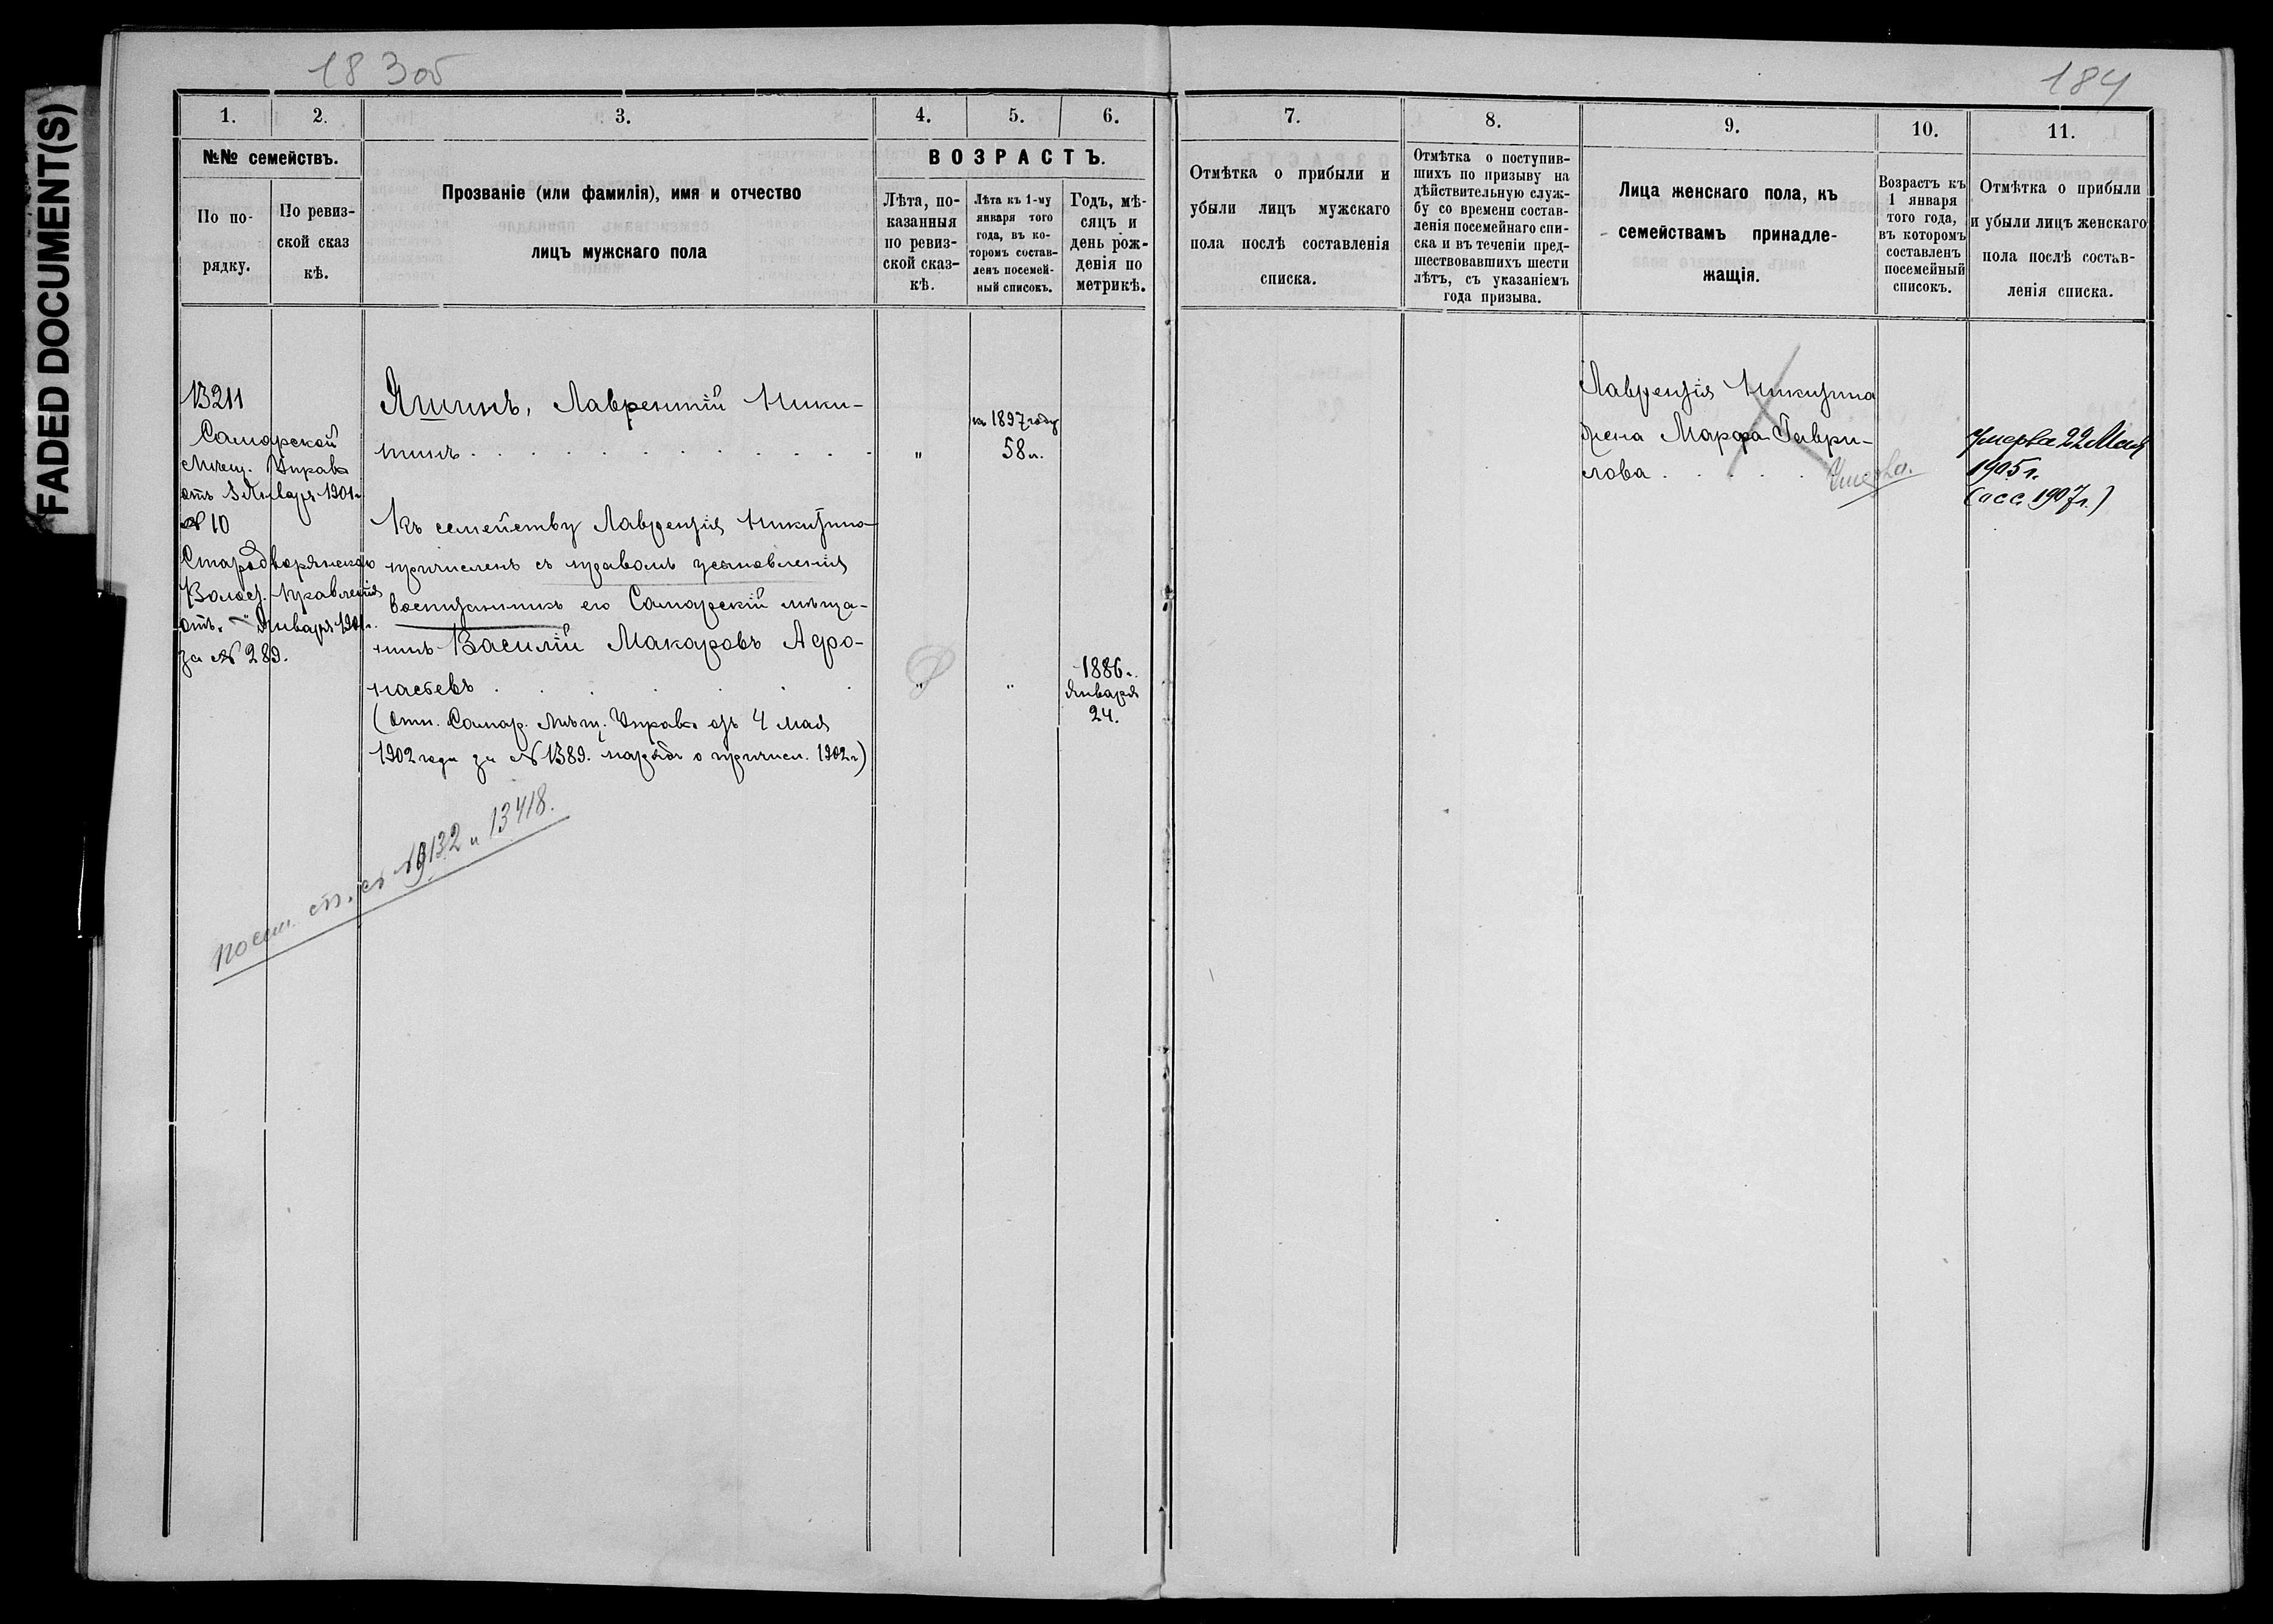 FADED DOCUMENT(S)
183об
184
1. 2. 3. 4. 5. 6. 7. 8. 9. 10. 11.
№№ семействъ.
По по-
рядку.
По ревиз-
ской сказ
кѣ.
Прозваніе (или фамилія), имя и отчество
лицъ мужскаго пола
ВОЗРАСТЪ.
Лѣта, по-
казанныя
по ревиз-
ской сказ-
кѣ.
Лѣта къ 1-му
января того
года, въ ко-
торомъ состав-
ленъ посемей-
ный списокъ.
Годъ, мѣ-
сяцъ и
день рож-
денія по
метрикѣ.
Отмѣтка о прибыли и
убыли лицъ мужскаго
пола послѣ составленія
списка.
Отмѣтка о поступив-
шихъ по призыву на
дѣйствительную служ-
бу со времени состав-
ленія посемейнаго спи-
ска и въ теченіи пред-
шествовавшихъ шести
лѣтъ, съ указаніемъ
года призыва.
Лица женскаго пола, къ
семействамъ принадле-
жащія.
Возрастъ къ
1 января
того года,
въ которомъ
составленъ
посемейный
списокъ.
Отмѣтка о прибыли
и убыли лицъ женскаго
пола послѣ состав-
ленія списка.
13211
Самарской
Мѣщ. Управ.
отъ Января 1901 г.
№ 10
Стародворянскаго
Волост. Правленія
отъ " " Января 1901 г.
за № 289.
Яшинъ, Лаврентій Ники-
тинъ . . . . . . . . . . . "
въ 1897 году
58 л.
Къ семейству Лаврентія Никитина
причисленъ съ правомъ усыновленія
воспитанникъ его Самарскій мѣща-
нинъ Василій Макаровъ Афо-
насьевъ . . . . . . " "
1886 г.
Января
24.
(отн. Самар. Мѣщ. Управ. отъ 4 мая
1902 года за № 1389. нарядъ о причисл. 1902 г.)
13418.
Лаврентія Никитина
жена Марфа Гаври-
лова . . . . .
Умерла.
Умерла 22 Мая
1905 г.
1907 г.)